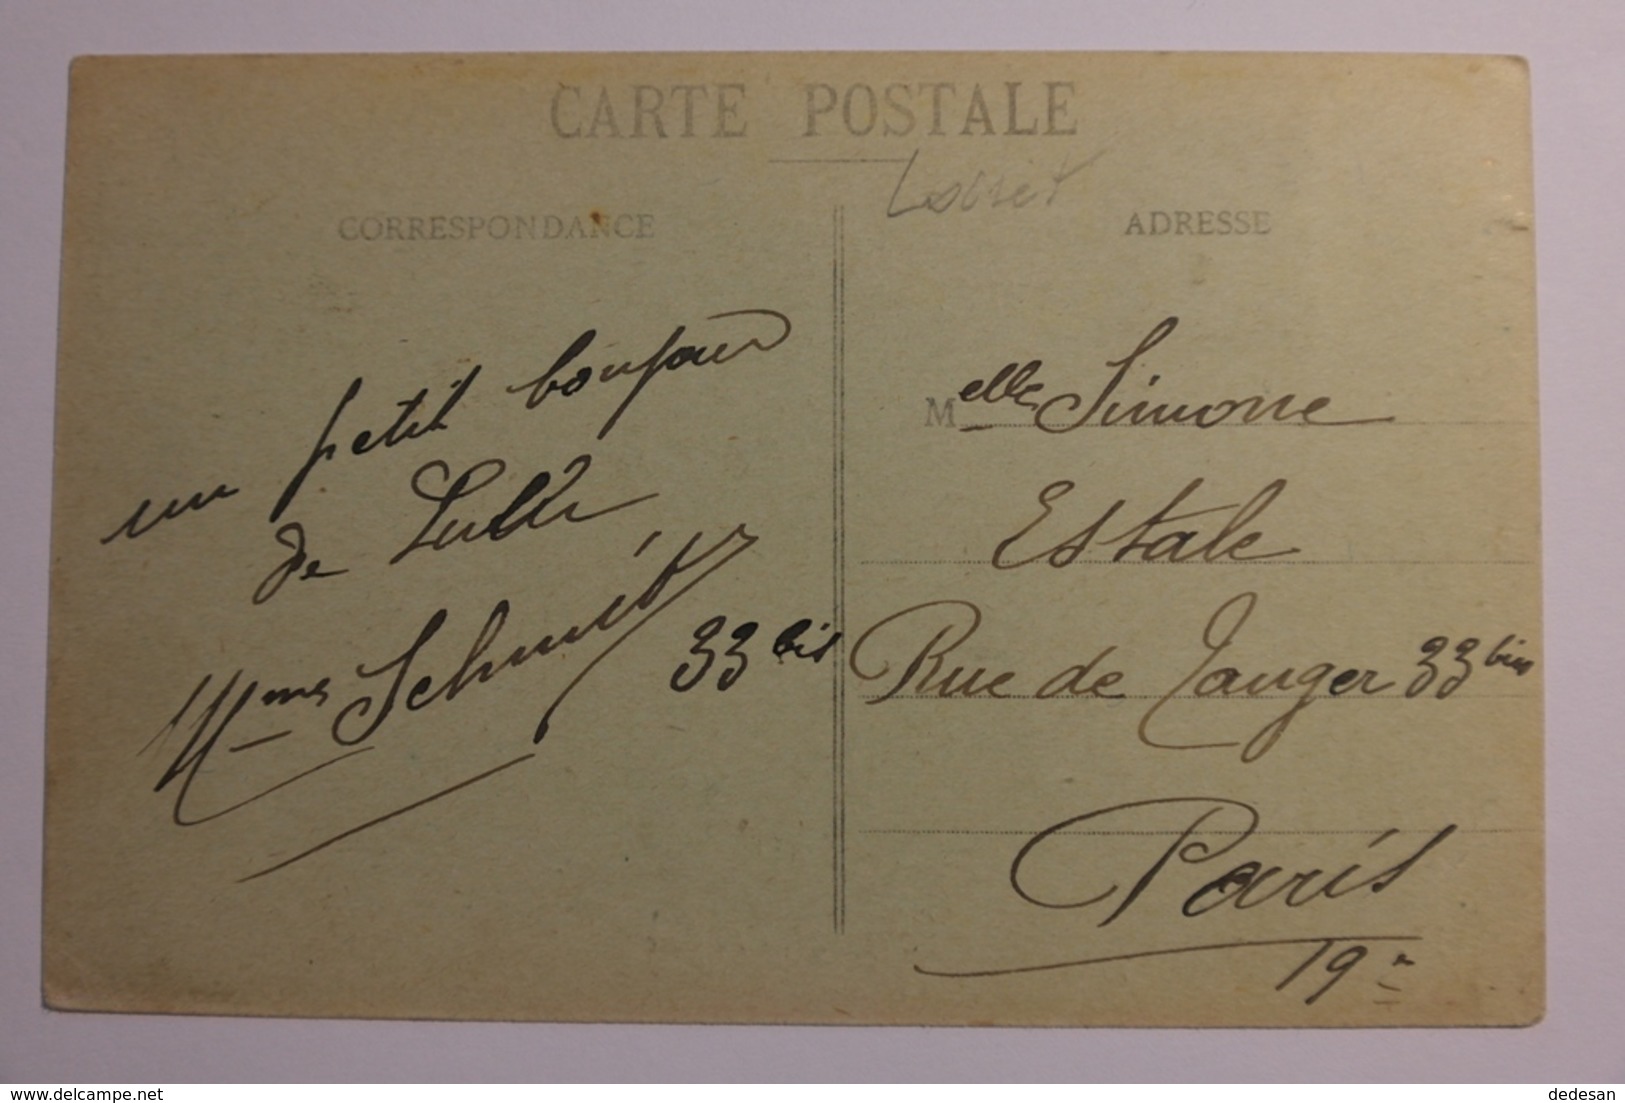 CARTE POSTALE
Loiret
CORRESPONDANCE
ADRESSE
un petit bonjour
de
Mme Schmitt
33 bis
Melle Simone
Estale
Rue de Tanger 33 bis
Paris
19e
www.delcampe.net
dedesan